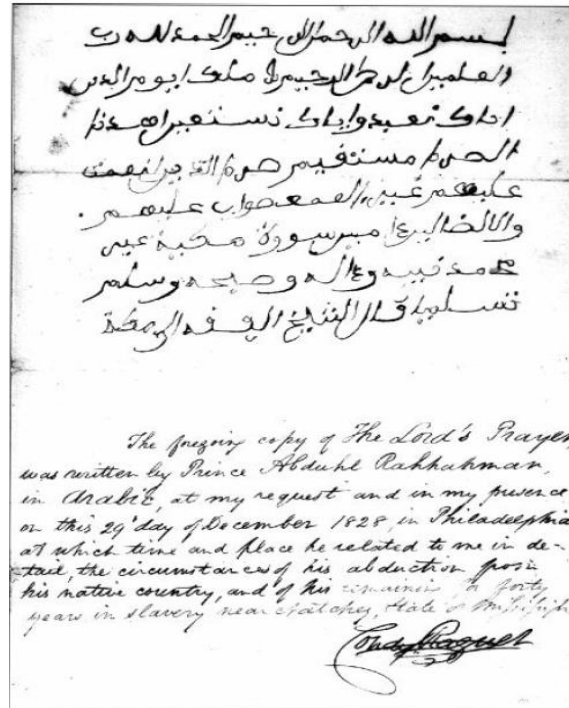 بسم الله الرحمن الرحيم الحمد لله رب
العلمين الرحمن الرحيم ملك يوم الدين
اياك نعبد واياك نستعين اهدنا
الصراط مستقيم صراط الذين انعمت
عليهم غير المغضوب عليهم
والالضالين امين سورة مكية
محمد نبيه واله وصحبه وسلم
تسليما قال الشيخ
The foregoing copy of The Lord's Prayer
was written by Prince Abduhl Rahhahman,
in Arabic, at my request and in my presence
on this 29' day of December 1828, in Philadelphia
at which time and place he related to me in de-
tail, the circumstances of his abduction from
his native country, and of his remaining for forty
years in slavery near Natchez, State of Mississippi
Condy Raguet